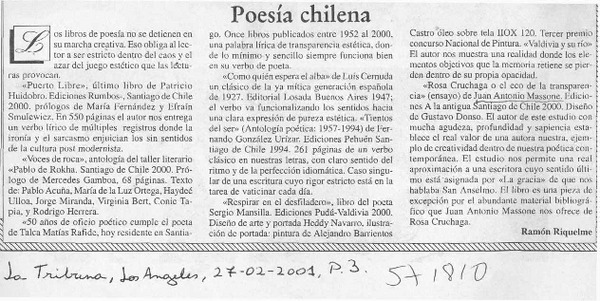 Poesía chilena
Los libros de poesía no se detienen en
su marcha creativa. Eso obliga al lec-
tor a ser estricto dentro del caos y el
azar del juego estético que las lectu-
ras provocan.
«Puerto Libre», último libro de Patricio
Huidobro. Ediciones Rumbos-, Santiago de Chile
2000. prólogos de María Fernández y Efraín
Smulewiez. En 550 páginas el autor nos entrega
un verbo lírico de múltiples registros donde la
ironía y el sarcasmo enjuician los sin sentidos
de la cultura post modernista.
«Voces de roca», antología del taller literario
«Pablo de Rokha. Santiago de Chile 2000. Pró-
logo de Mercedes Gamboa, 68 páginas. Texto
de: Pablo Acuña, María de la Luz Ortega, Haydeé
Ulloa, Jorge Miranda, Virginia Bert, Conie Ta-
pia, y Rodrigo Herrera.
«50 años de oficio poético cumple el poeta
de Talca Matías Rafide, hoy residente en Santia-
go. Once libros publicados entre 1952 al 2000,
una palabra lírica de transparencia estética, don-
de lo mínimo y sencillo siempre funciona bien
en su verbo de poeta.
«Como quién espera el alba» de Luis Cernuda
un clásico de la ya mítica generación española
de 1927. Editorial Losada Buenos Aires 1947;
el verbo va funcionalizando los sentidos hacia
una clara expresión de pureza estética. «Tientos
del ser» (Antología poética: 1957-1994) de Fer-
nando González Urízar. Ediciones Pehuén San-
tiago de Chile 1994. 261 páginas de un verbo
clásico en nuestras letras, con claro sentido del
ritmo y de la perfección idiomática. Caso sin-
gular de una escritura cuyo rigor estricto está en la
tarea de vaticinar cada día.
«Respirar en el desfiladero», libro del poeta
Sergio Mansilla. Ediciones Pudú-Valdivia 2000.
Diseño de arte y portada Heddy Navarro, ilustra-
ción de portada: pintura de Alejandro Barrientos
Castro óleo sobre tela IIOX 120. Tercer premio
concurso Nacional de Pintura. «Valdivia y su río»
El autor nos muestra una realidad donde los ele-
mentos objetivos que la memoria retiene se pier-
den dentro de su propia opacidad.
«Rosa Cruchaga o el eco de la transparen-
cia» (ensayo) de Juan Antonio Massone. Edicio-
nes A la antigua Santiago de Chile 2000. Diseño
de Gustavo Donso. El autor de este estudio con
mucha agudeza, profundidad y sapiencia esta-
blece el real valor de una autora nuestra, ejem-
plo de creatividad dentro de nuestra poética con-
temporánea. El estudio nos permite una real
aproximación a una escritura cuyo sentido últi-
mo está asignada por «La gracia» de que nos
hablaba San Anselmo. El libro es una pieza de
excepción por el abundante material bibliográfi-
co que Juan Antonio Massone nos ofrece de
Rosa Cruchaga.
Ramón Riquelme
La Tribuna, Los Angeles, 27-02-2001, P. 3.
571810